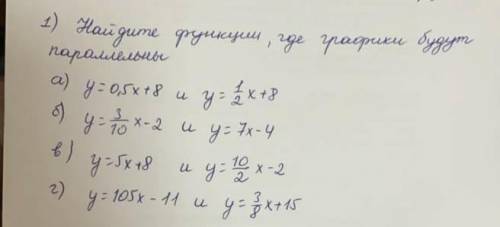 1) Найдите функции, где графики будут
параллельны
а) y=0,5x+8 и y=1/2x+8
б) y=3/10x-2 и y=7x-4
в) y=5x+8 и y=10/2x-2
г) y=105x-11 и y=3/8x+15